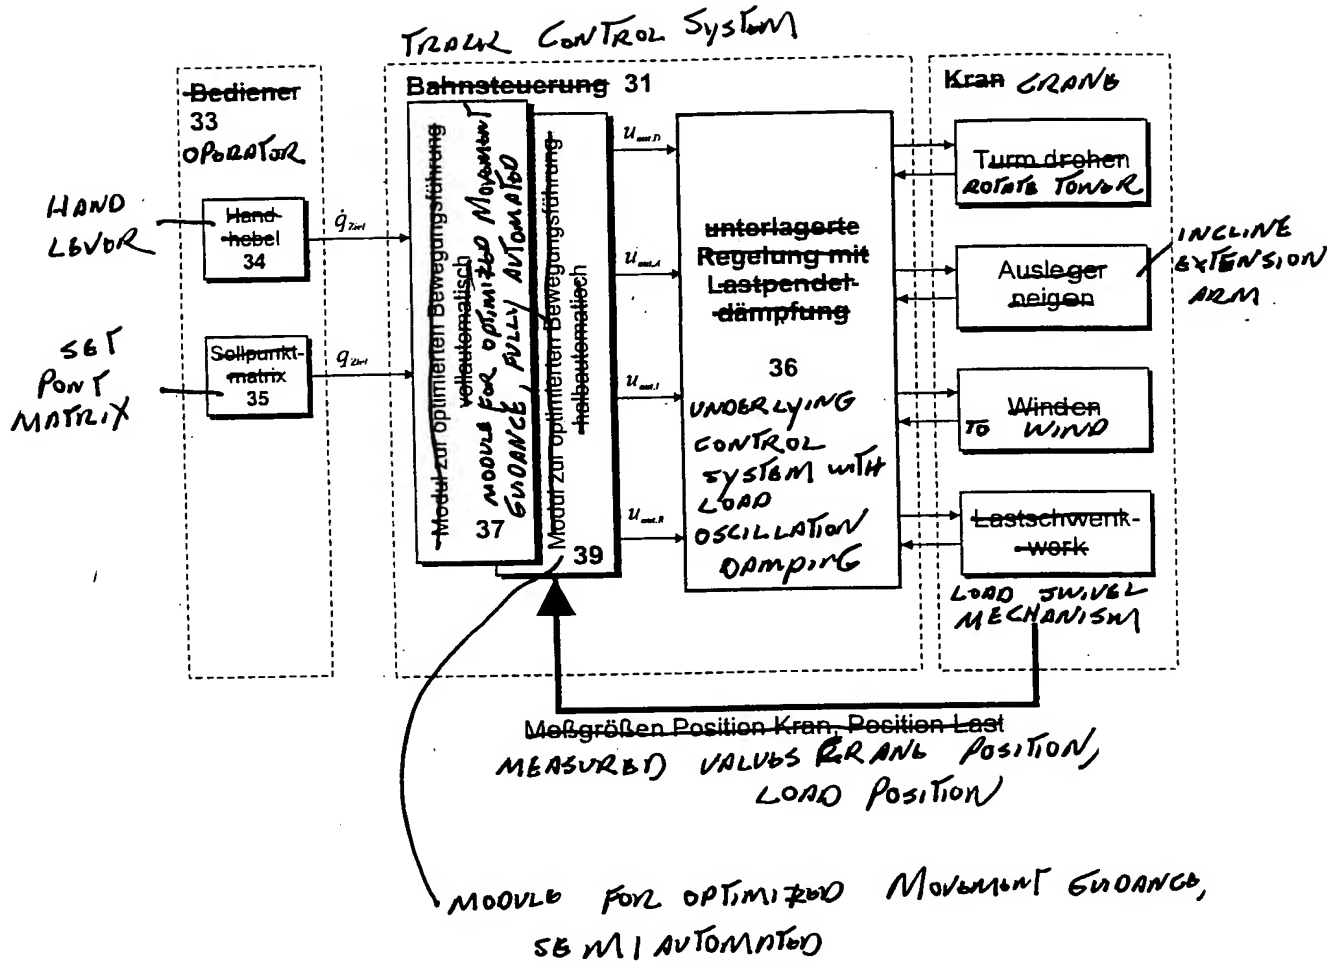 TRACK CONTROL SYSTEM
Bediener
33
OPERATOR
Bahnsteuerung 31
Kran CRANE
HAND
LEVER
Hand-
hebel
34
q̇Ziel
SET
PONT
MATRIX
Sollpunkt-
matrix
35
qZiel
Modul zur optimierten Bewegungsführung
vollautomatisch
MODULE FOR OPTIMIZED MOVEMENT
GUIDANCE, FULLY AUTOMATED
37
Modul zur optimierten Bewegungsführung
halbautomatisch
39
uout,D
uout,A
uout,l
uout,R
unterlagerte
Regelung mit
Lastpendel-
dämpfung
36
UNDERLYING
CONTROL
SYSTEM WITH
LOAD
OSCILLATION
DAMPING
Turm drehen
ROTATE TOWER
Ausleger
neigen
INCLINE
EXTENSION
ARM
Winden
TO WIND
Lastschwenk-
werk
LOAD SWIVEL
MECHANISM
Meßgrößen Position Kran, Position Last
MEASURED VALUES CRANE POSITION,
LOAD POSITION
MODULE FOR OPTIMIZED MOVEMENT GUIDANCE,
SEMI AUTOMATED